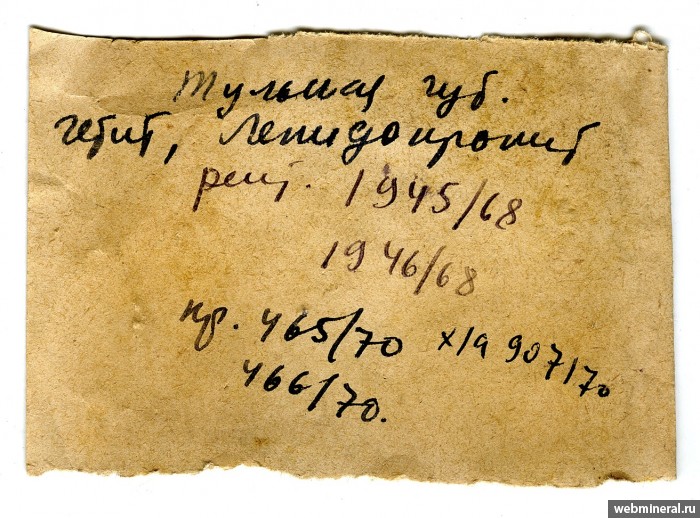 Тульская губ.
гетит, Лепидокрокит
рент. 1945/68
1946/68
пр. 465/70 х/а 907/70
466/70.
webmineral.ru